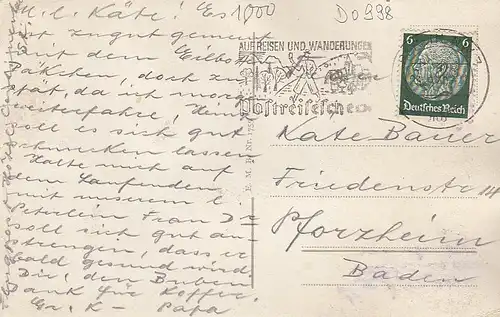 M. l. Käte! Es
ist zu gut gemeint
mit dem Eilboten
Päckchen, doch zu
spät, da ich morg.
weiterfahre, Heinz
soll es sich gut
schmecken lassen
Halte mich auf
dem Laufenden
mit unserem l.
Peterlein Frau Dr
soll sich gut an-
strengen, dass er
bald gesund wird
Dir, den Buben
Dank für Koffer.
Gr. K- Papa
1000
Do 998
AUF REISEN UND WANDERUNGEN
Postreisescheck
6 6
Deutsches Reich
Kate Bauer
Friedenstr 111
Pforzheim
Baden